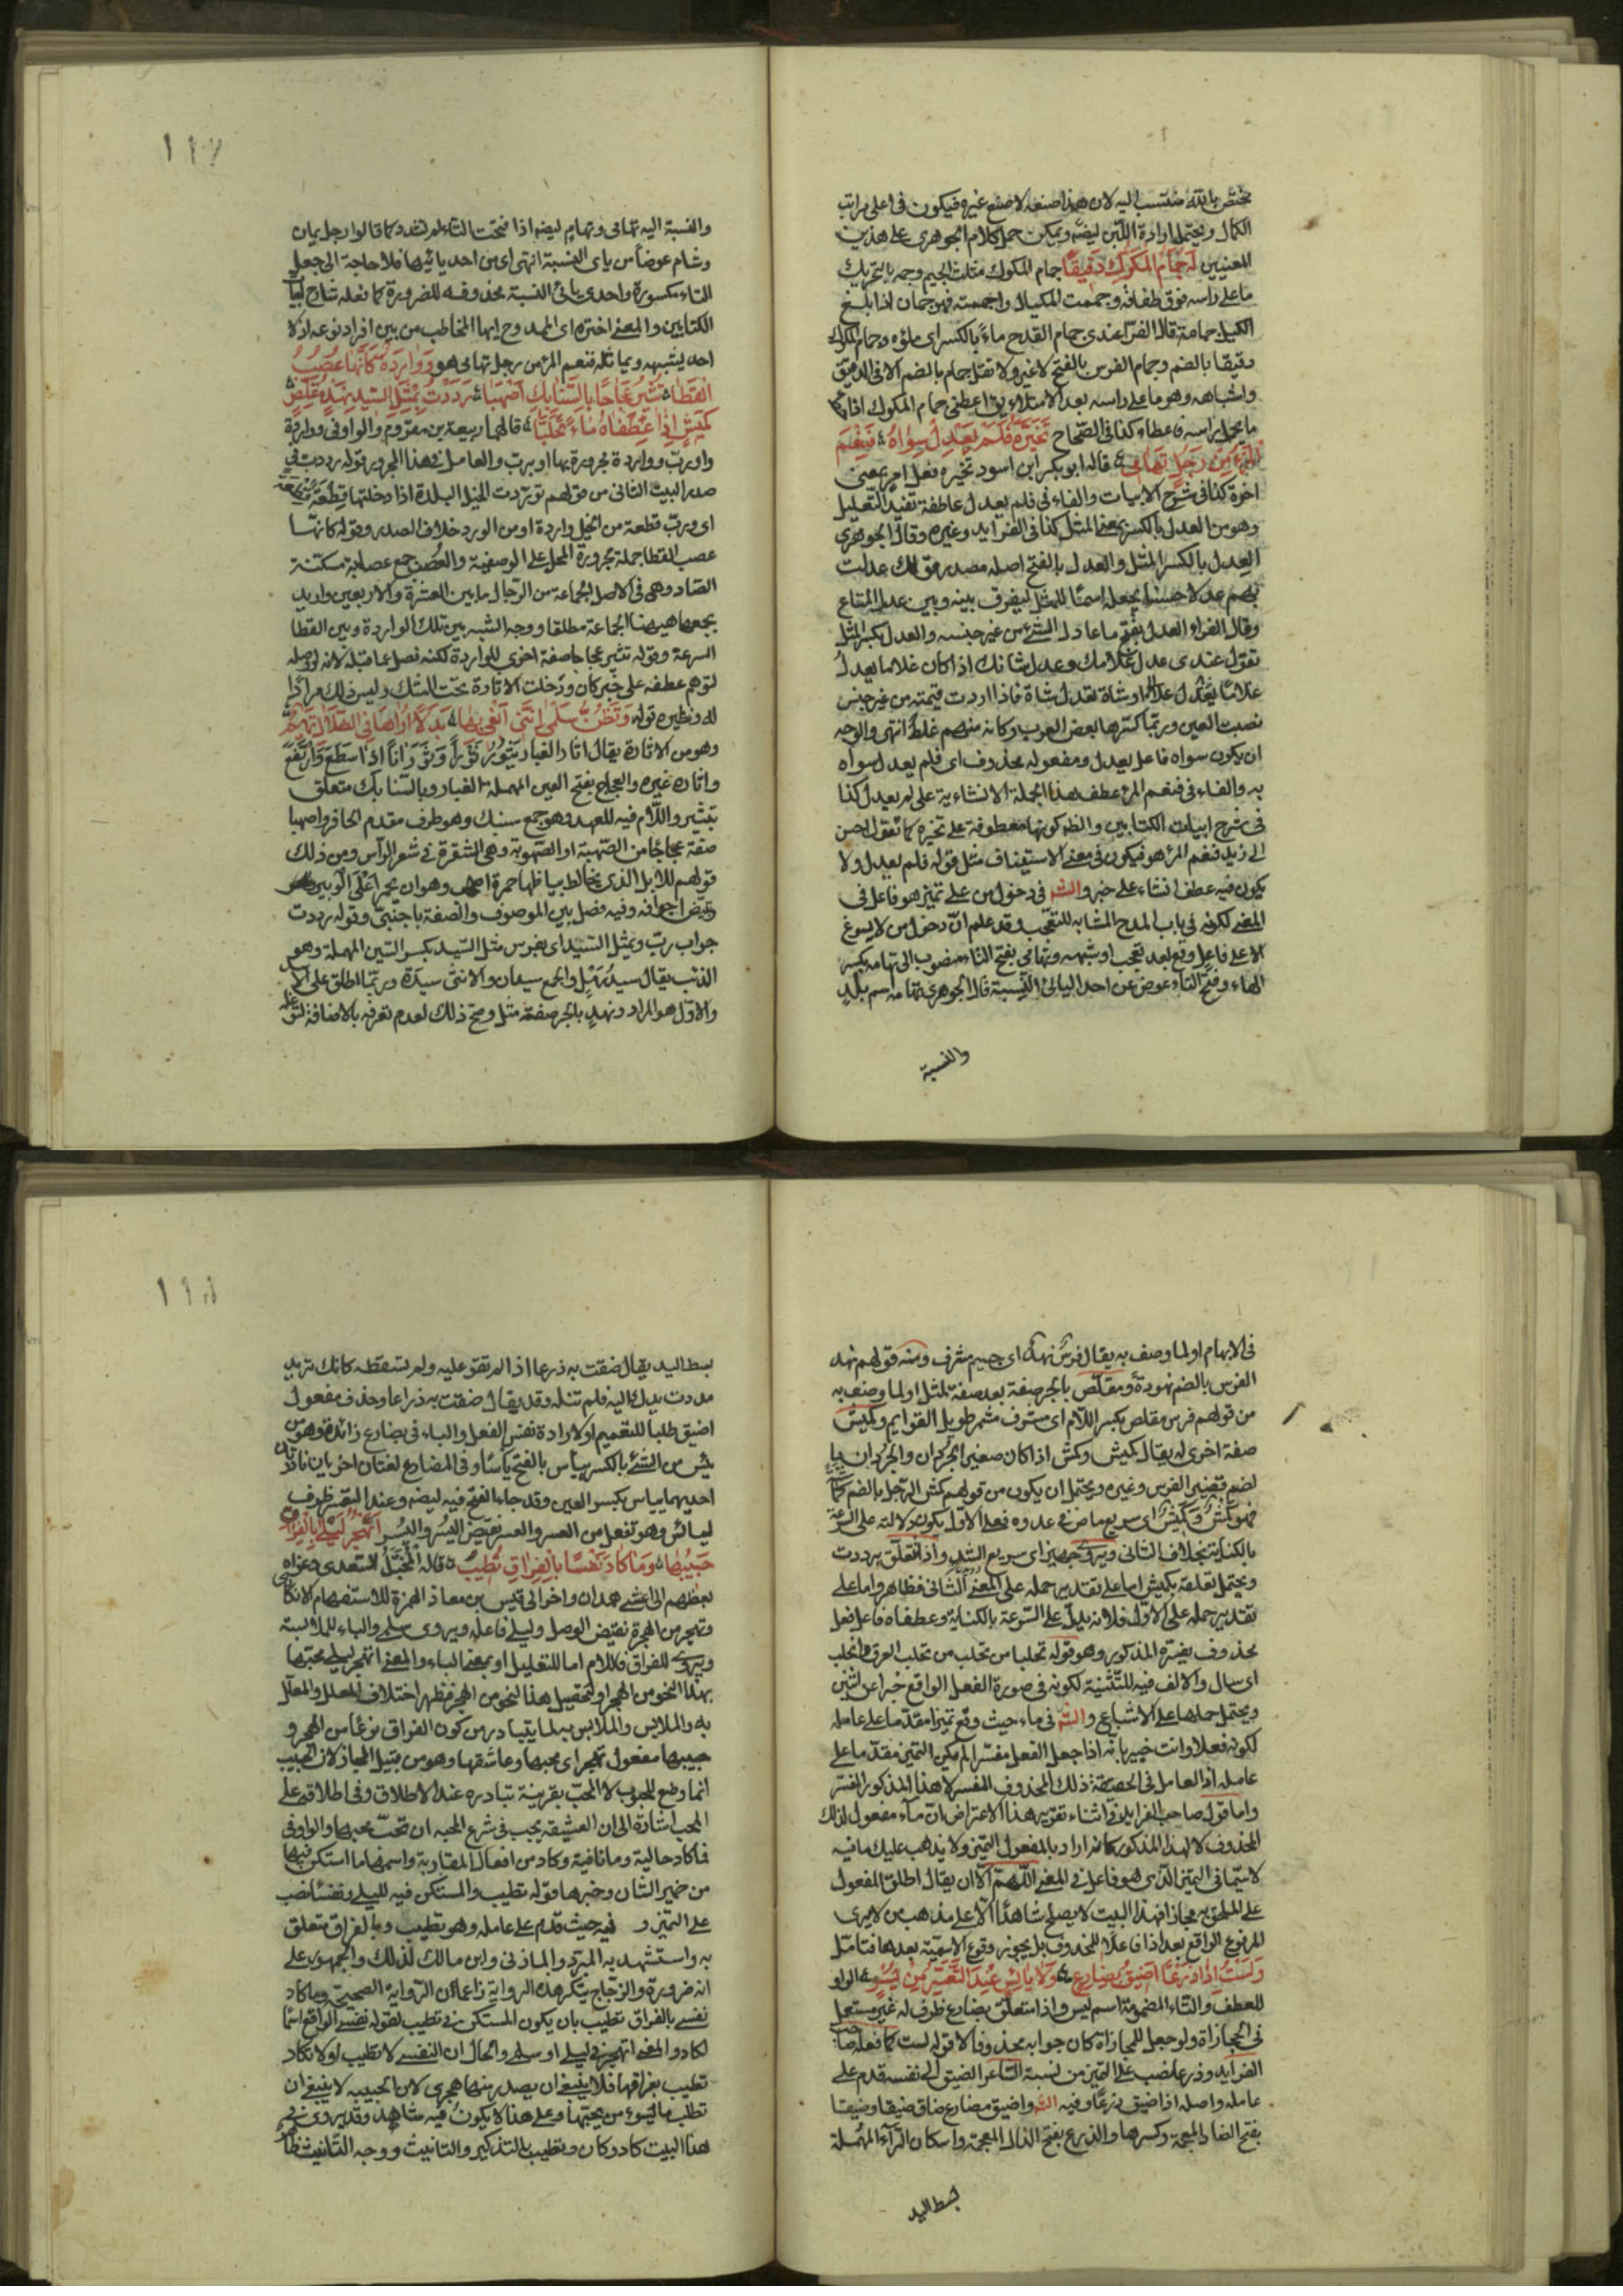 مختص بالله منتسب اليه لان هذا صنعه لا صنع غيره فيكون فى اعلى مراتب
الكمال ويحتمل ارادة اللبن ايضا ويمكن حمل كلام الجوهرى على هذين
المعنيين له جمام المكوك دقيقا جمام المكوك مثلث الجيم وجممه بالتحريك
ما على راسه فوق طفافه وجممت المكيال واجممته فهو جمان اذا بلغ
الكيل جمامه قال الفراء عندى جمام القدح ماء بالكسر اى ملؤه وجمام المكوك
دقيقا بالضم وجمام الفرس بالفتح لا غير ولا تقل جمام بالضم الا فى الدقيق
واشباهه وهو ما على راسه بعد الامتلاء يق اعطنى جمام المكوك اذا
ما يحمل راسه فاعطاه كذا فى الصحاح تخيره فلم يعدل سواه فنعم
المرء من رجل تهامى قاله ابو بكر ابن اسود تخيره فعل امر بمعنى
اختره كذا فى شرح الابيات والفاء فى فلم يعدل عاطفة تفيد التعليل
وهو من العدل بالكسر بمعنى المثل كذا فى الفرايد وغيره وقال الجوهرى
العدل بالكسر المثل والعدل بالفتح اصله مصدر قولك عدلت
بهم عدلا حسنا تجعله اسما للمثل ليفرق بينه وبين عدل المتاع
وقال الفراء العدل بفتح ما عادل الشئ من غير جنسه والعدل بكسر المثل
تقول عندى عدل غلامك وعدل شاتك اذا كان غلاما يعدل
غلاما او شاة تعدل شاة فاذا اردت قيمته من غير جنس
نصبت العين وربما كسرها بعض العرب وكانه منهم غلط انتهى والوجه
ان يكون سواه فاعل يعدل ومفعوله محذوف اى فلم يعدل سواه
به والفاء فى فنعم المرء عطف هذا الجملة الانشائية على لم يعدل كذا
فى شرح ابيات الكتابين والظ كونها معطوفة على تخيره كما تقول احسن
الى زيد فنعم المرء هو فيكون فى معنى الاستيناف مثل قوله فلم يعدل ولا
يكون فيه عطف انشاء على خبر والشه فى دخول من على تميز هو فاعل فى
المعنى لكونه فى باب المدح المشابه للتعجب وقد علم ان دخول من لا يسوغ
الا على فاعل وقع بعد تعجب او شبهه وتهامى بفتح التاء منصوب الى تهامه بكسر
الهاء وفتح التاء عوض عن احد اليائى النسبة قال الجوهرى تهامة اسم بلد
والنسبة
١١٧
والنسبة اليه تهامى وتهام ايضا اذا فتحت التاء لم تشدد كما قالوا رجل يمان
وشام عوضا من ياى النسبة انتهى اى من احد يائيها فلا حاجة الى جعل
التاء مكسورة واحدى يائى النسبة محذوفه للضرورة كما فعله شارح ابيات
الكتابين والمعنى اختره اى الممدوح ايها المخاطب من بين افراد نوعه اذ لا
احد يشبهه ويماثله فنعم المرء من رجل تهامى هو وواردة كانها عصب
القطا تثير عجاجا بالسنابك اصهبا رددت بمثل السيد نهد مقلص
كميش اذا عطفاه ماء تحلبا قالهما ربيعة بن مقروم والواو فى وواردة
واو رب وواردة مجرورة بها او برب والعامل فى هذا المجرور قوله رددت فى
صدر البيت الثانى من قولهم توردت الخيل البلدة اذا دخلتها قطعة قطعة
اى ورب قطعة من الخيل واردة او من الورد خلاف الصدر وقوله كانها
عصب القطا جملة مجرورة المحل على الوصفية والعصب جمع عصابة مسكنة
الصاد وهى فى الاصل الجماعة من الرجال ما بين العشرة والاربعين واريد
بجمعها ههنا الجماعة مطلقا ووجه الشبه بين تلك الواردة وبين القطا
السرعة وقوله تثير عجاجا صفة اخرى للواردة لكنه فصل عما قبله لانه لو وصله
لتوهم عطفه على خبر كان ودخلت الاثارة تحت الشك وليس ذلك مرادا
له ونظيره قوله وتظن سلمى اننى ابغى بها بدلا اراها فى الضلال تهيم
وهو من الاثارة يقال اثار الغبار يثور ثورا وثورانا اذا سطع وارتفع
واثاره غيره والعجاج بفتح العين المهملة الغبار وبالسنابك متعلق
بتثير واللام فيه للعهد وهو جمع سنبك وهو طرف مقدم الحافر واصهبا
صفة عجاجا من الصهبة او الصهوبة وهى الشقرة فى شعر الرأس ومن ذلك
قولهم للابل الذى يخالط بياضها حمرة اصهب وهو ان يحمر اعلى الوبر
وتبيض اجوافه وفيه فصل بين الموصوف والصفة باجنبى وقوله رددت
جواب رب وبمثل السيد اى بفرس مثل السيد بكسر السين المهملة وهو
الذئب يقال سيد رمل والجمع سيدان والانثى سيدة وربما اطلق على الاسد
والاول هو المراد ونهد بالجر صفة مثل وصح ذلك لعدم تعرفه بالاضافة لتوغله
فى الابهام او لما وصف به يقال فرس نهد اى جسيم مشرف ومنه قولهم نهد
الفرس بالضم نهودة ومقلص بالجر صفة بعد صفة لمثل او لما وصف به
من قولهم فرس مقلص بكسر اللام اى مشرف مشمر طويل القوايم وكميش
صفة اخرى له يقال كميش وكمش اذا كان صغير الجردان والجردان
لضم قضيب الفرس وغيره ويحتمل ان يكون من قولهم كمش الرجل بالضم كماشة
فهو كمش وكميش اى سريع ماض فى عدوه فعلى الاول يكون دلالته على السرعة
بالكناية بخلاف الثانى ويروى جهيز اى سريع الشد واذا تعلق برددت
ويحتمل تعلقه بكميش اما على تقدير حمله على المعنى الثانى فظاهر واما على
تقدير حمله على الاول فلانه يدل على السرعة بالكناية وعطفاه فاعل فعل
محذوف يفسره المذكور وهو قوله تحلبا من تحلب من تحلب العرق وانحلب
اى سال والالف فيه للتثنية لكونه فى صورة الفعل الواقع خبرا عن اثنين
ويحتمل حملها على الاشباع والشه فى ماء حيث وقع تميزا مقدما على عامله
لكونه فعلا وانت خبير بانه اذا جعل الفعل مفسرا لم يكن التميز مقدما على
عامله اذ العامل فى الحقيقة ذلك المحذوف المفسر لا هذا المذكور المفسر
واما قول صاحب الفرايد فى اثناء تقريره هذا الاعتراض ان ماء مفعول لذلك
المحذوف لا لهذا المذكور فكانه اراد بالمفعول التميز ولا يذهب عليك ما فيه
لا سيما فى التميز الذى هو فاعل فى المعنى اللهم الا ان يقال اطلق المفعول
على الملحق به مجازا فهذا البيت لا يصلح شاهدا الا على مذهب من لا يرى
المرفوع الواقع بعد اذا فاعلا للمحذوف بل يجوز وقوع الاسمية بعدها فتامل
ولست اذا ذرعا اضيق بضارع ولا يائس عند التعسر من يسر الواو
للعطف والتاء المضمومة اسم ليس واذا متعلق بضارع ظرف له غير مستعمل
فى المجازاة ولو جعل للمجازاة كان جوابه محذوفا لا قوله لست كما فعله صاحب
الفرايد وذرعا نصب على التميز من نسبة الشاعر الضيق الى نفسه قدم على
عامله واصله اذا اضيق ذرعا وفيه الشه واضيق مضارع ضاق ضيقا وضيقا
بفتح الضاد المعجمة وكسرها والذرع بفتح الذال المعجمة واسكان الراء المهملة
بسط اليد
١١٨
بسط اليد يقال ضقت به ذرعا اذا لم تقو عليه ولم تسقطه كانك تريد
مددت يدك اليه فلم تنله وقد يقال ضقت به ذراعا وحذف مفعول
اضيق طلبا للتعميم او لارادة نفس الفعل والباء فى بضارع زائدة وهو من
يئس من الشئ بالكسر ييأس بالفتح يأسا وفى المضارع لغتان اخريان نادرتان
احديهما يياس بكسر العين وقد جاء الفتح فيه ايضا وعند التعسر ظرف
ليائس وهو تفعل من العسر والعسر نقيض اليسر واليسر اتهجر ليلى بالفراق
حبيبها وما كاد نفسا بالفراق تطيب قاله المخبل السعدى وعزاه
بعضهم الى اعشى همدان واخر الى قيس بن معاذ الهمزة للاستفهام الانكارى
وتهجر من الهجرة نقيض الوصل وليلى فاعله ويروى سلمى والباء للملابسة
ويروى للفراق فاللام اما للتعليل او بمعنى الباء والمعنى اتهجر ليلى محبها
بهذا النحو من الهجر او لتحصيل هذا النحو من الهجر فظهر اختلاف المعلل والمعلل
به والملابس والملابس به لما يتبادر من كون الفراق نوعا من الهجر و
حبيبها مفعول تهجر اى محبها وعاشقها وهو من قبيل المجاز لان الحبيب
انما وضع للمحبوب لا المحب بقرينة تبادره عند الاطلاق وفى اطلاقه على
المحب اشارة الى ان العشيقه يجب فى شرع المحبه ان تحب محبها والواو فى
فما كاد حالية وما نافية وكاد من افعال المقاربة واسمها ما استكن فيها
من ضمير الشان وخبرها قوله تطيب والمستكن فيه لليلى ونفسا نصب
على التميز و فيه حيث قدم على عامله وهو تطيب وبالفراق متعلق
به واستشهد به المبرد والمازنى وابن مالك لذلك والجمهور على
انه ضرورة والزجاج ينكر هذه الرواية زاعما ان الرواية الصحيحة وما كاد
نفسى بالفراق تطيب بان يكون المستكن فى تطيب لقوله نفسى الواقع اسما
لكاد والمعنى اتهجرنى ليلى او سلمى والحال ان النفسى لا تطيب او لا تكاد
تطيب بفراقها فلا ينبغى ان يصدر منها هجرى لان الحبيبه لا ينبغى ان
تطلب ما ليسوء من يحبها وعلى هذا لا يكون فيه شاهد وقد يروى فى
هذا البيت كاد وكان وتطيب بالتذكير والتانيث ووجه التانيث ظاهر